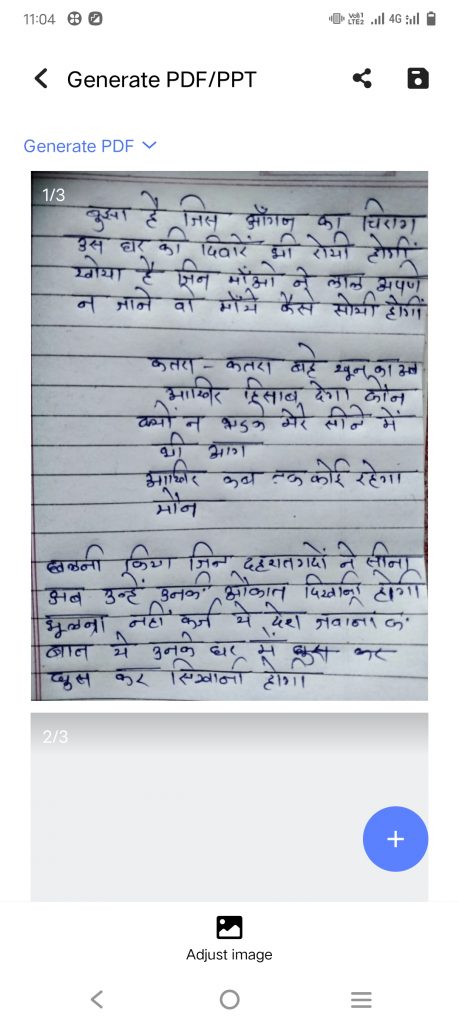 11:04
VoB1 LTE2 4G
Generate PDF/PPT
Generate PDF
1/3
बुझा है जिस आँगन का चिराग
उस घर की दिवारें भी रोयी होगीं
खोया है जिन माँओ ने लाल अपणे
न जाने वो माँये कैसे सोयी होगीं
कतरा - कतरा बहे खून का अब
आखिर हिसाब देगा कौन
क्यों न भडके मेरे सीने में
भी आग
आखिर कब तक कोई रहेगा
मौन
छलनी किया जिन दहशतगर्दो ने सीना
अब उन्हें उनकी औकात दिखानी होगी
भूलना नहीं कर्ज ये देश जवानों का
बात ये उनके घर में घुस कर
घुस कर सिखानी होगी
2/3
Adjust image